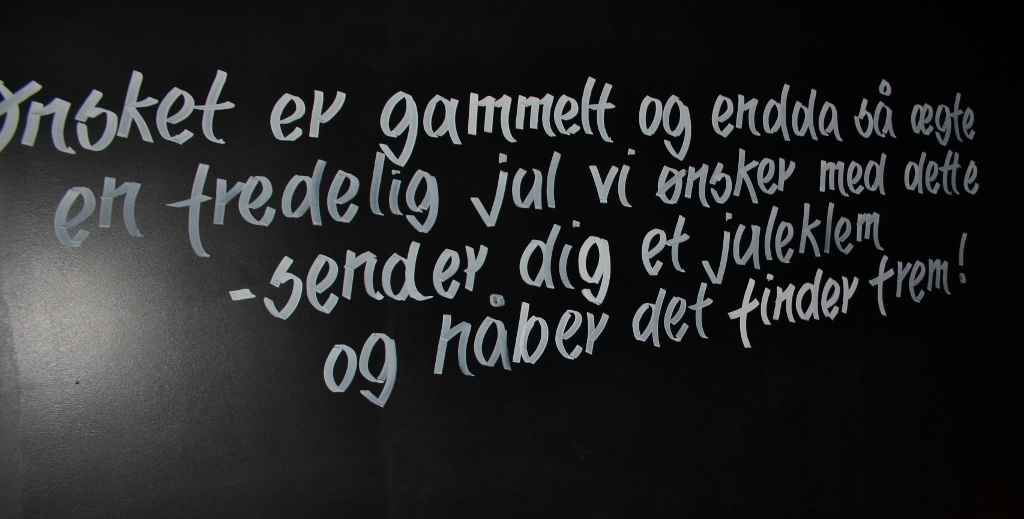 Ønsket er gammelt og endda så ægte
en fredelig jul vi ønsker med dette
-sender dig et juleklem
og håber det finder frem!